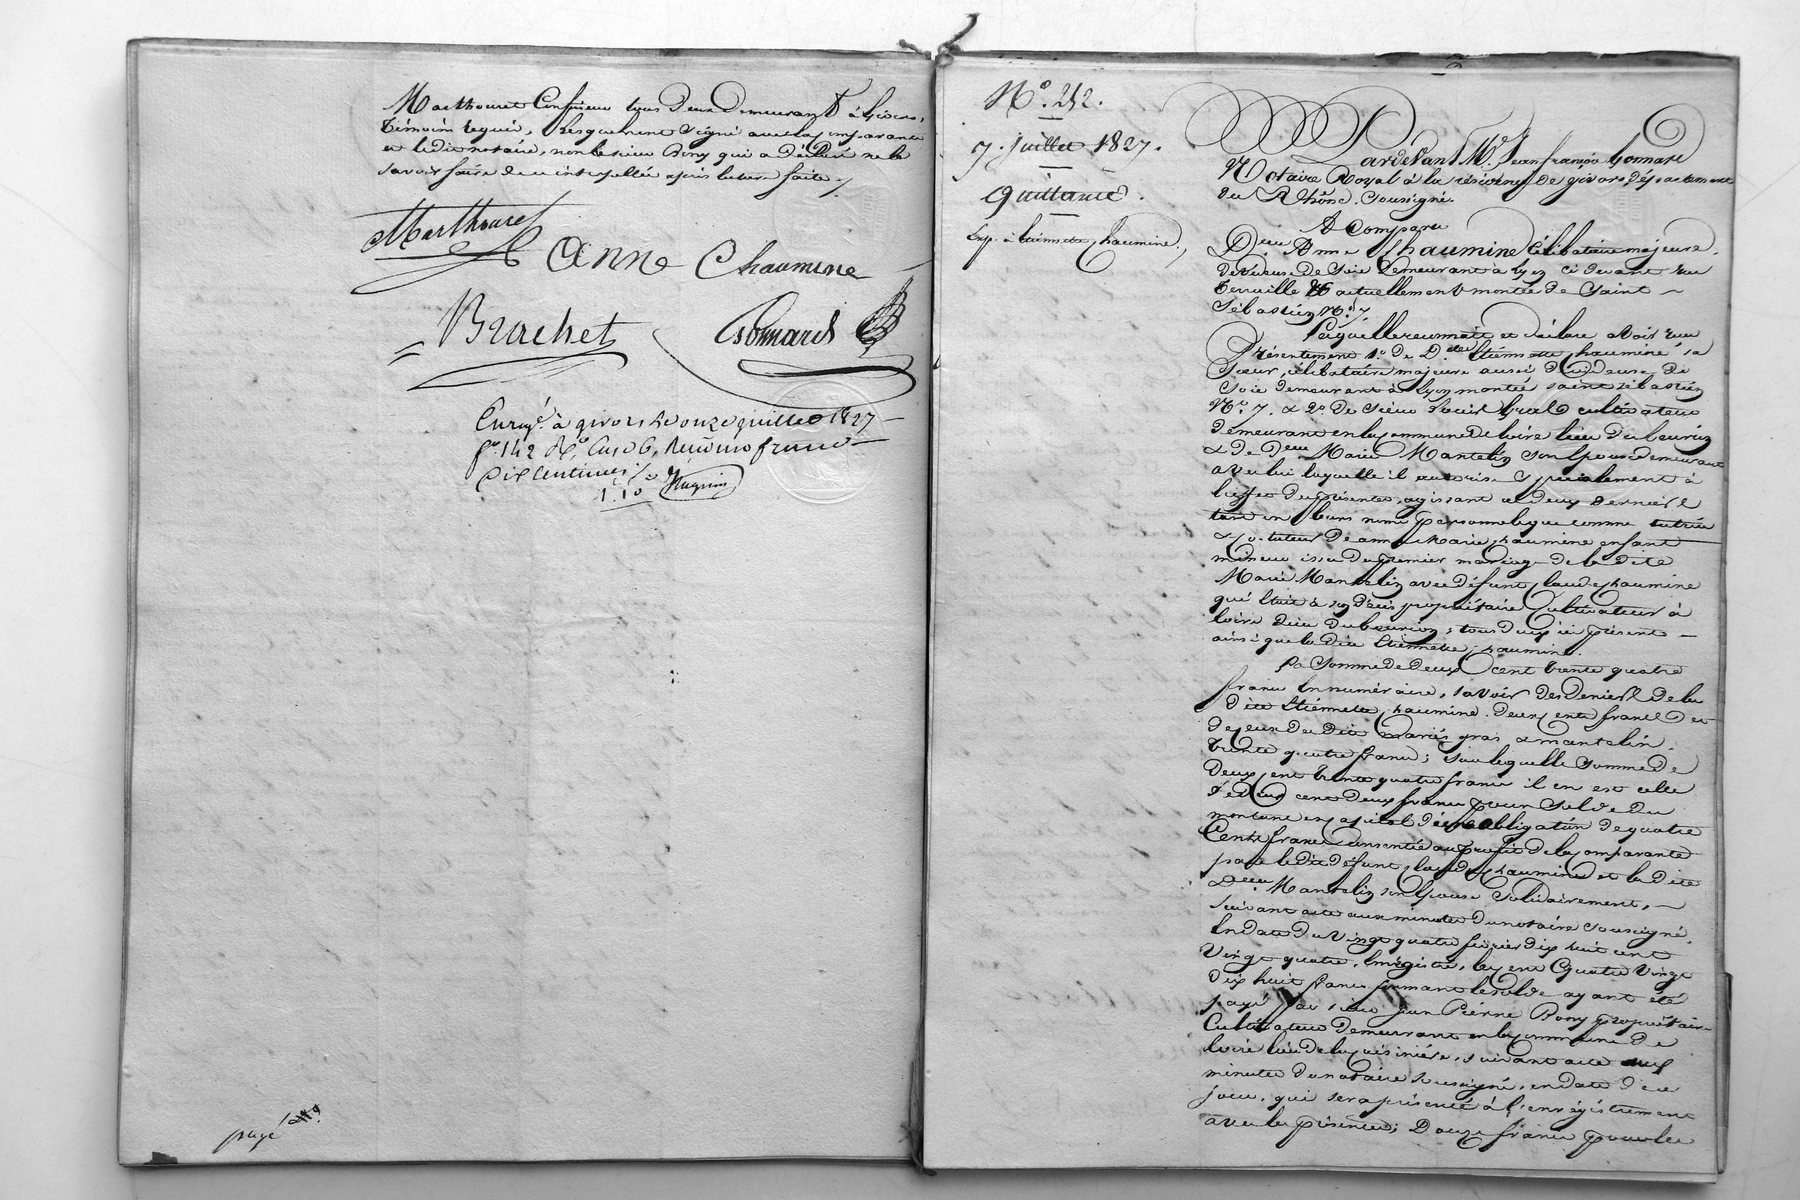 Marthouret Confiseur tous deux demeurant à Givors,
témoins requis, lesquels ont signé avec la comparante
et ledit notaire, non le sieur Bony qui a déclaré ne le
savoir faire de ce interpellé après lecture faite
Marthouret
Anne Chaumine
Brachet
Gonnard
Enreg.é à givors le onze juillet 1827
f.o 142 R.o Cas 6, Reçu un franc
dix Centimes
1 10
page
N.o 242.
7. juillet 1827.
Quittance.
Exp. à étiennette Chaumine
Pardevant M.e Jean françois Gonnard
Notaire Royal à la résidence de givors département
du Rhône. Soussigné.
A Comparu
D.lle Anne Chaumine Célibataire majeure.
devideuse de Soie demeurant à lyon ci devant rue
actuellement montée de Saint
Sébastien N.o 7.
Laquelle reconnait et déclare avoir reçu
Présentement 1.o de D.elle étiennette Chaumine sa
Sœur, célibataire majeure aussi dévideuse de
Soie demeurant à lyon montée saint sébastien
N.o 7. & 2.o de Sieur gras cultivateur
demeurant en la commune de loire lieu du
& de D.me Marie Mantelin son épouse demeurant
avec lui laquelle il autorise spécialement à
l'effet des présentes, agissant ces deux derniers
tant en leurs noms personnels que comme tutrice
& co-tuteur de anne Marie Chaumine enfant
mineure issue du premier mariage de la dite
Marie Mantelin avec défunt Claude Chaumine
qui était à son décès propriétaire Cultivateur à
loire lieu du tous deux ici présent
ainsi que la dite étiennette Chaumine.
La Somme de Deux Cent trente quatre
francs En numéraire, savoir des deniers de la
dite étiennette Chaumine. deux cents francs et
de ceux des dits mariés gras & mantelin.
trente quatre francs; sur laquelle Somme de
Deux cent trente quatre francs il en est celle
de deux cent deux francs pour Solde du
montant en capital d'une obligation de quatre
Cents francs consentie au profit de la comparante
par ledit défunt Claude Chaumine et la dite
D.me Mantelin son épouse Solidairement,
suivant acte aux minutes du notaire soussigné.
En date du vingt quatre février dix huit cent
vingt quatre, Enregistré, les cent quatre vingt
dix huit francs formant le solde ayant été
payé par sieur jean Pierre Bony propriétaire
Cultivateur demeurant en la commune de
loire lieu de suivant acte aux
minutes du notaire soussigné, en date de ce
jour. qui sera présenté à l'enregistrement
avec les présentes; Douze francs pour les